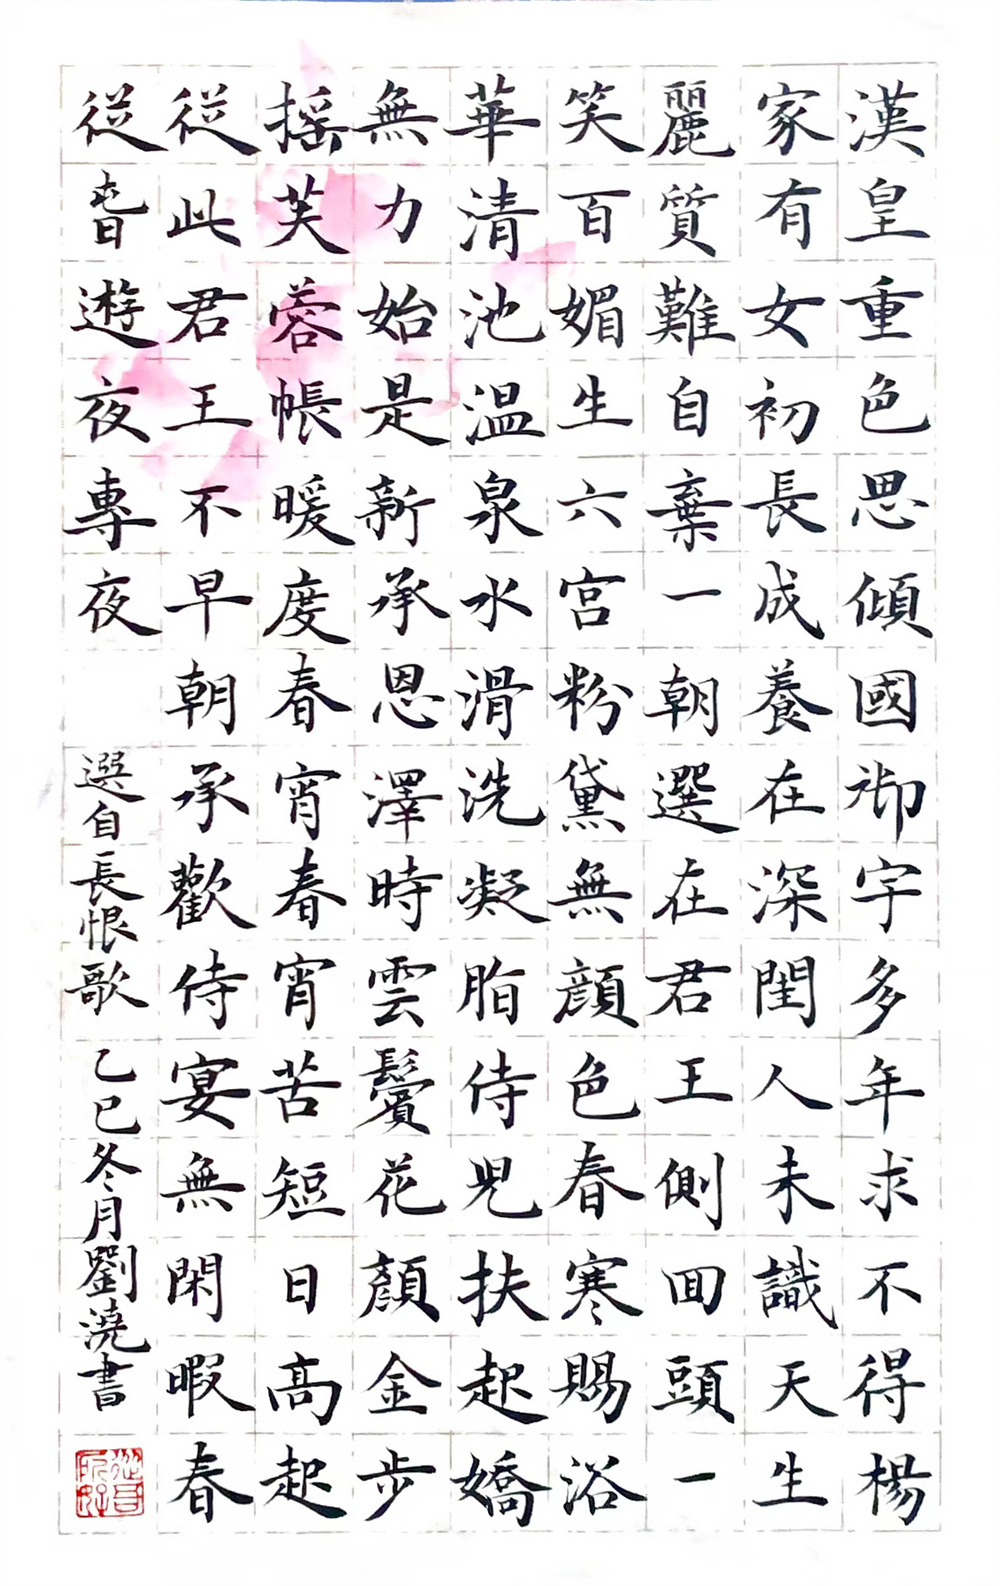 漢皇重色思傾國御宇多年求不得楊
家有女初長成養在深閨人未識天生
麗質難自棄一朝選在君王側囬頭一
笑百媚生六宮粉黛無顔色春寒賜浴
華清池温泉水滑洗凝脂侍兒扶起嬌
無力始是新承恩澤時雲鬢花顔金步
摇芙蓉帳暖度春宵春宵苦短日高起
從此君王不早朝承歡侍宴無閑暇春
從春遊夜專夜
選自長恨歌 乙巳冬月劉澆書
從吾所好